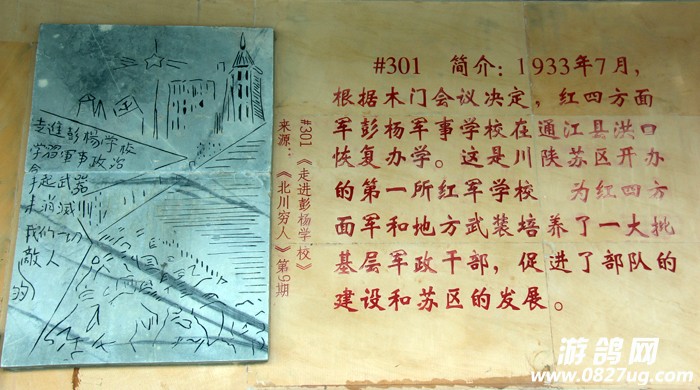 走進彭楊学校
学習軍事政治
拿起武器
来消滅
我们一切
敵人
的
#301 《走进彭杨学校》
来源：《北川穷人》第9期
#301 简介：1933年7月，
根据木门会议决定，红四方面
军彭杨军事学校在通江县洪口
恢复办学。这是川陕苏区开办
的第一所红军学校 为红四方
面军和地方武装培养了一大批
基层军政干部，促进了部队的
建设和苏区的发展。
游鸽网
www.0827ug.com